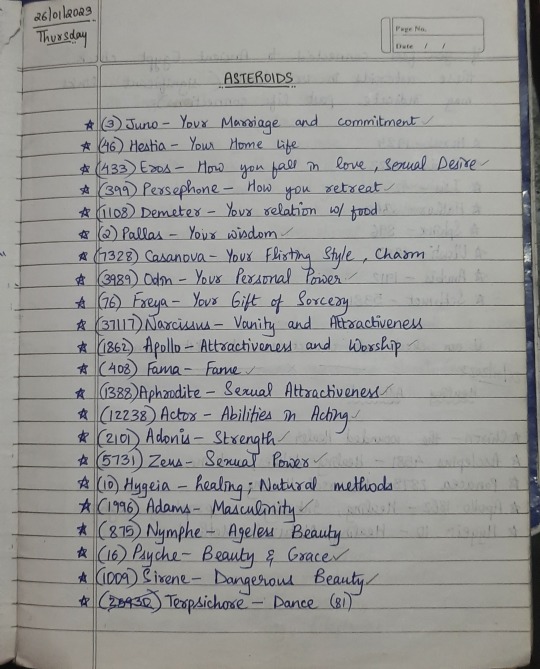 26/01/2023
Thursday
Page No.
Date / /
ASTEROIDS
☆ (3) Juno - Your Marriage and commitment ✓
☆ (46) Hestia - Your Home life
☆ (433) Eros - How you fall in love, Sexual Desire ✓
☆ (399) Persephone - How you retreat ✓
☆ (1108) Demeter - Your relation w/ food
☆ (2) Pallas - Your wisdom ✓
☆ (7328) Casanova - Your Flirting Style, Charm
☆ (3989) Odin - Your Personal Power ✓
☆ (76) Freya - Your Gift of Sorcery
☆ (37117) Narcissus - Vanity and Attractiveness
☆ (1862) Apollo - Attractiveness and Worship ✓
☆ (408) Fama - Fame ✓
☆ (1388) Aphrodite - Sexual Attractiveness ✓
☆ (12238) Actor - Abilities in Acting ✓
☆ (2101) Adonis - Strength ✓
☆ (5731) Zeus - Sexual Power ✓
☆ (10) Hygeia - healing; Natural methods
☆ (1996) Adams - Masculinity ✓
☆ (875) Nymphe - Ageless Beauty
☆ (16) Psyche - Beauty & Grace ✓
☆ (1009) Sirene - Dangerous Beauty ✓
☆ Terpsichore - Dance (81)